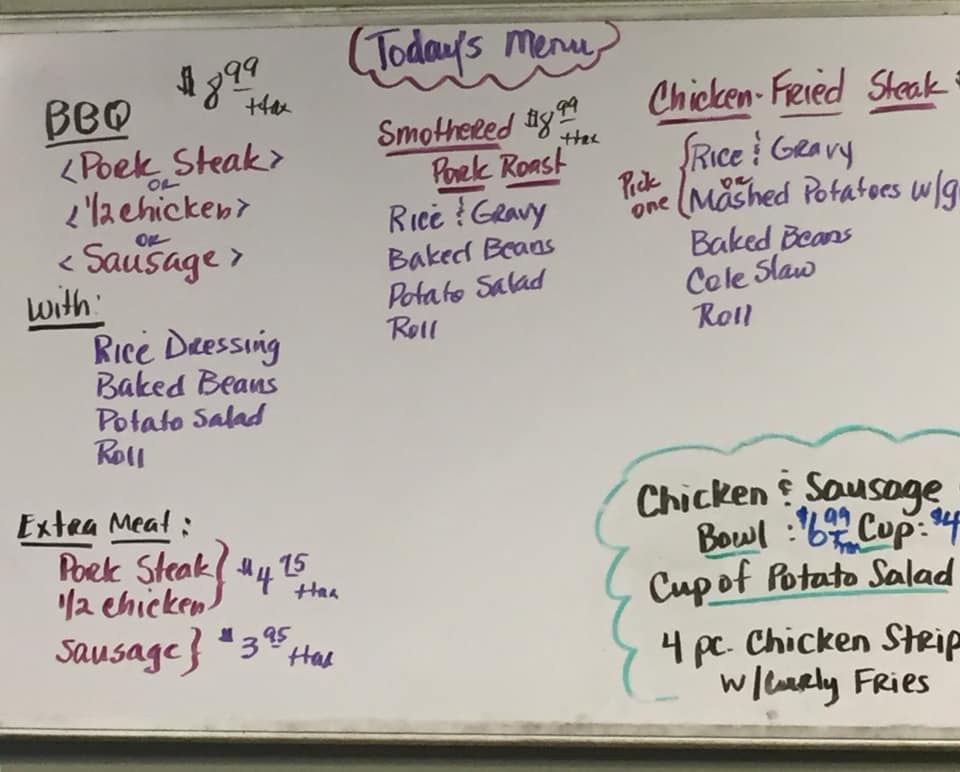 Today's Menu
BBQ $8.99 + tax
<Pork Steak>
or
<1/2 chicken>
or
<Sausage>
With:
Rice Dressing
Baked Beans
Potato Salad
Roll
Extra Meat:
Pork Steak
1/2 chicken } $4.75 + tax
Sausage } $3.95 + tax
Smothered $8.99 + tax
Pork Roast
Rice & Gravy
Baked Beans
Potato Salad
Roll
Chicken-Fried Steak
Pick one { Rice & Gravy
or
Mashed Potatoes w/g
Baked Beans
Cole Slaw
Roll
Chicken & Sausage
Bowl: $6.99 Cup: $4
Cup of Potato Salad
4 pc. Chicken Strip
w/Curly Fries